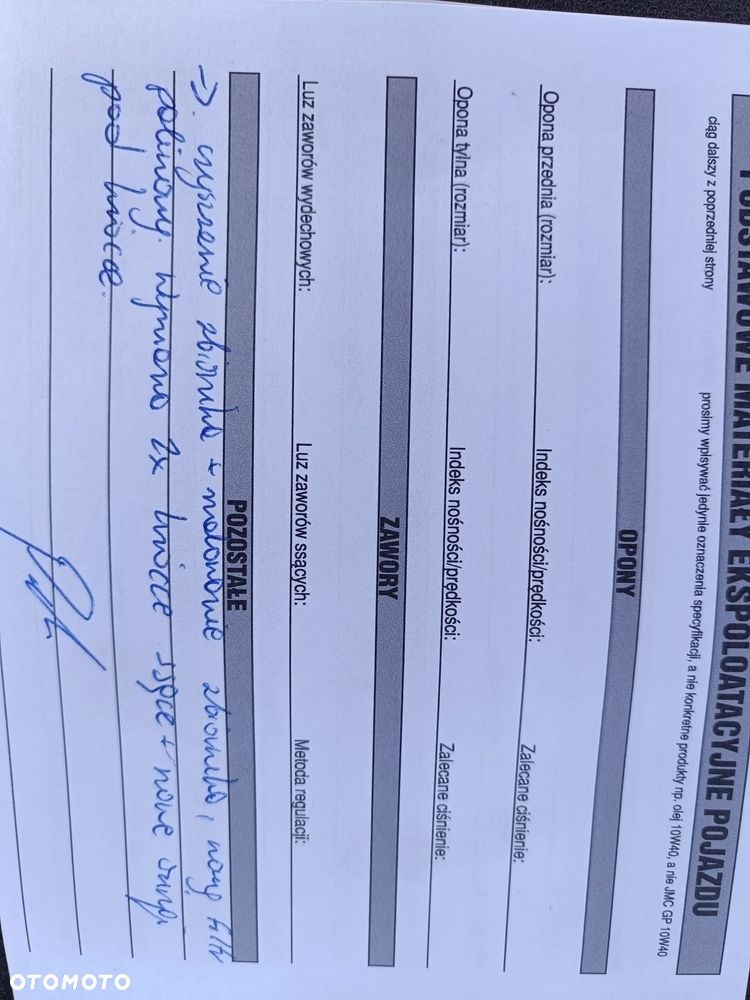 PODSTAWOWE MATERIAŁY EKSPOLOATACYJNE POJAZDU
ciąg dalszy z poprzedniej strony prosimy wpisywać jedynie oznaczenia specyfikacji, a nie konkretne produkty np. olej 10W40, a nie JMC GP 10W40
OPONY
Opona przednia (rozmiar): Indeks nośności/prędkości: Zalecane ciśnienie:
Opona tylna (rozmiar): Indeks nośności/prędkości: Zalecane ciśnienie:
ZAWORY
Luz zaworów wydechowych: Luz zaworów ssących: Metoda regulacji:
POZOSTAŁE
→ czyszczenie zbiornika + malowanie zbiornika, nowy filtr
paliwowy. Wymiana 2x króćce ssące + nowe
pod króćce.
OTOMOTO